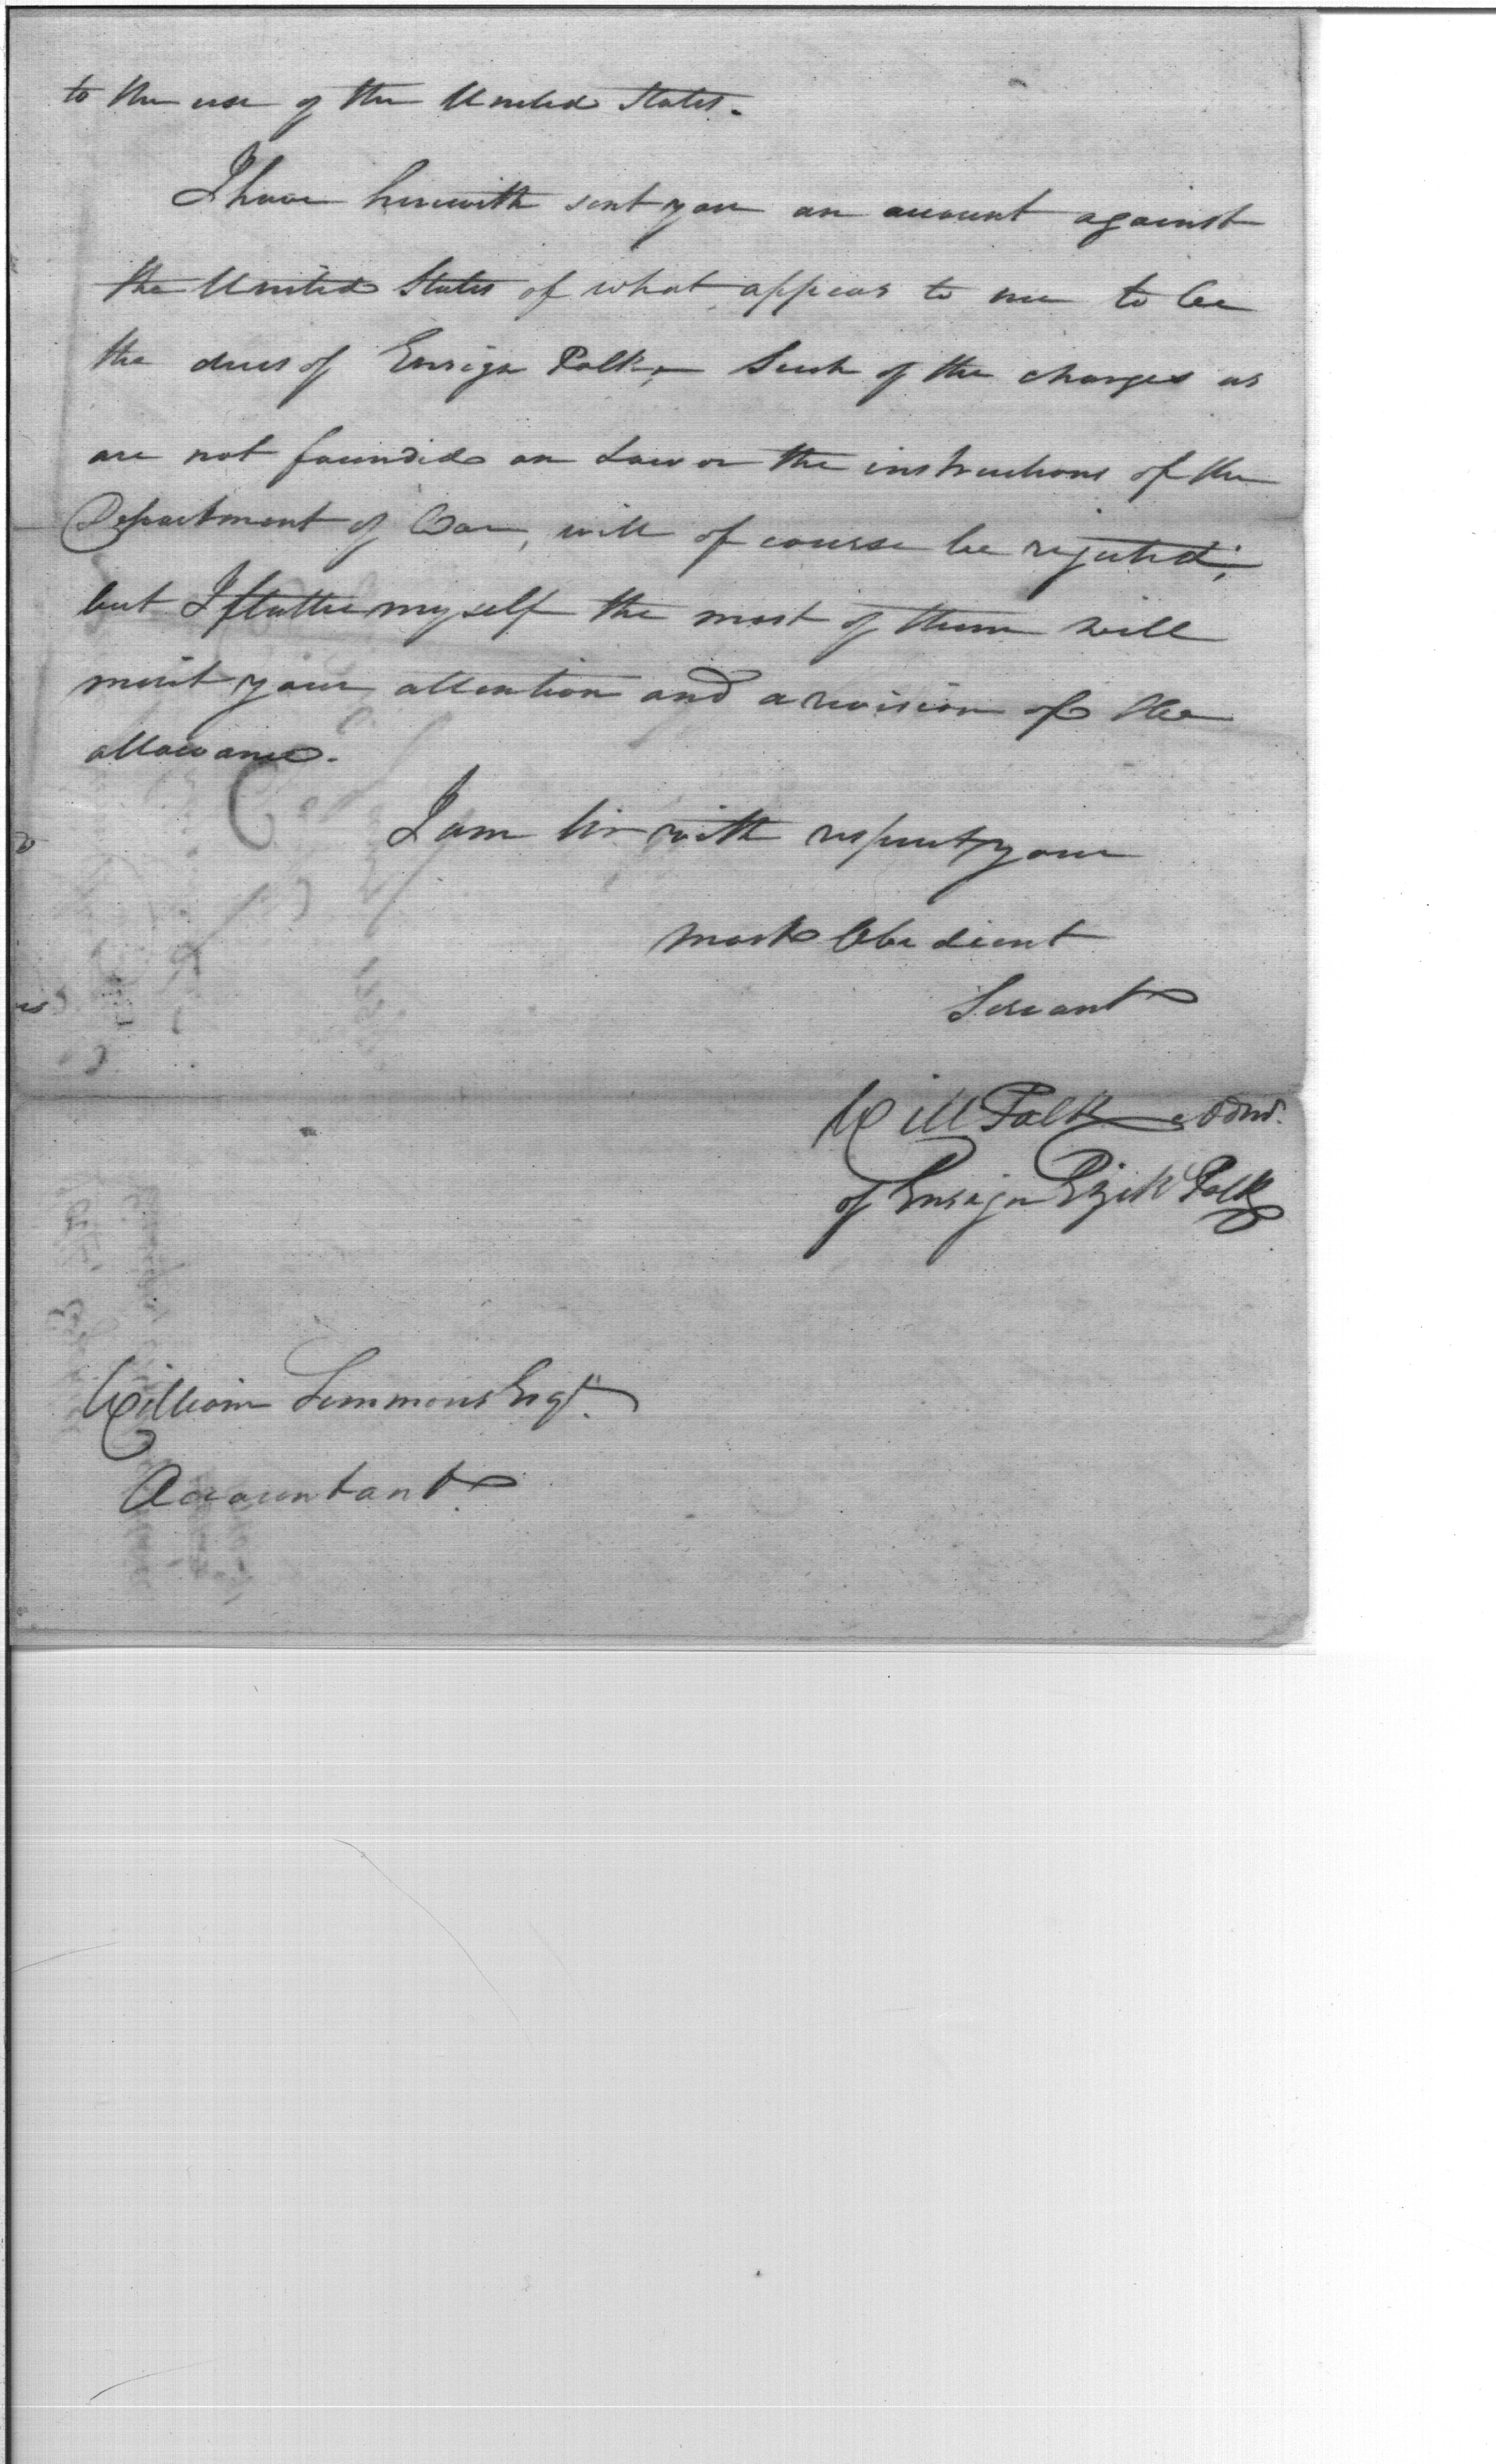 to the use of the United States.
I have herewith sent you an account against
the United States of what appears to me to be
the dues of Ensign Polk, Such of the charges as
are not founded on Law or the instructions of the
Department of War, will of course be rejected;
but I flatter myself the most of them will
merit your attention and a revision of the
allowance.
I am Sir with respect your
most Obedient
Servant
Will Polk Admr.
of Ensign Ezek Polk
William Simmons Esqr.
Accountant